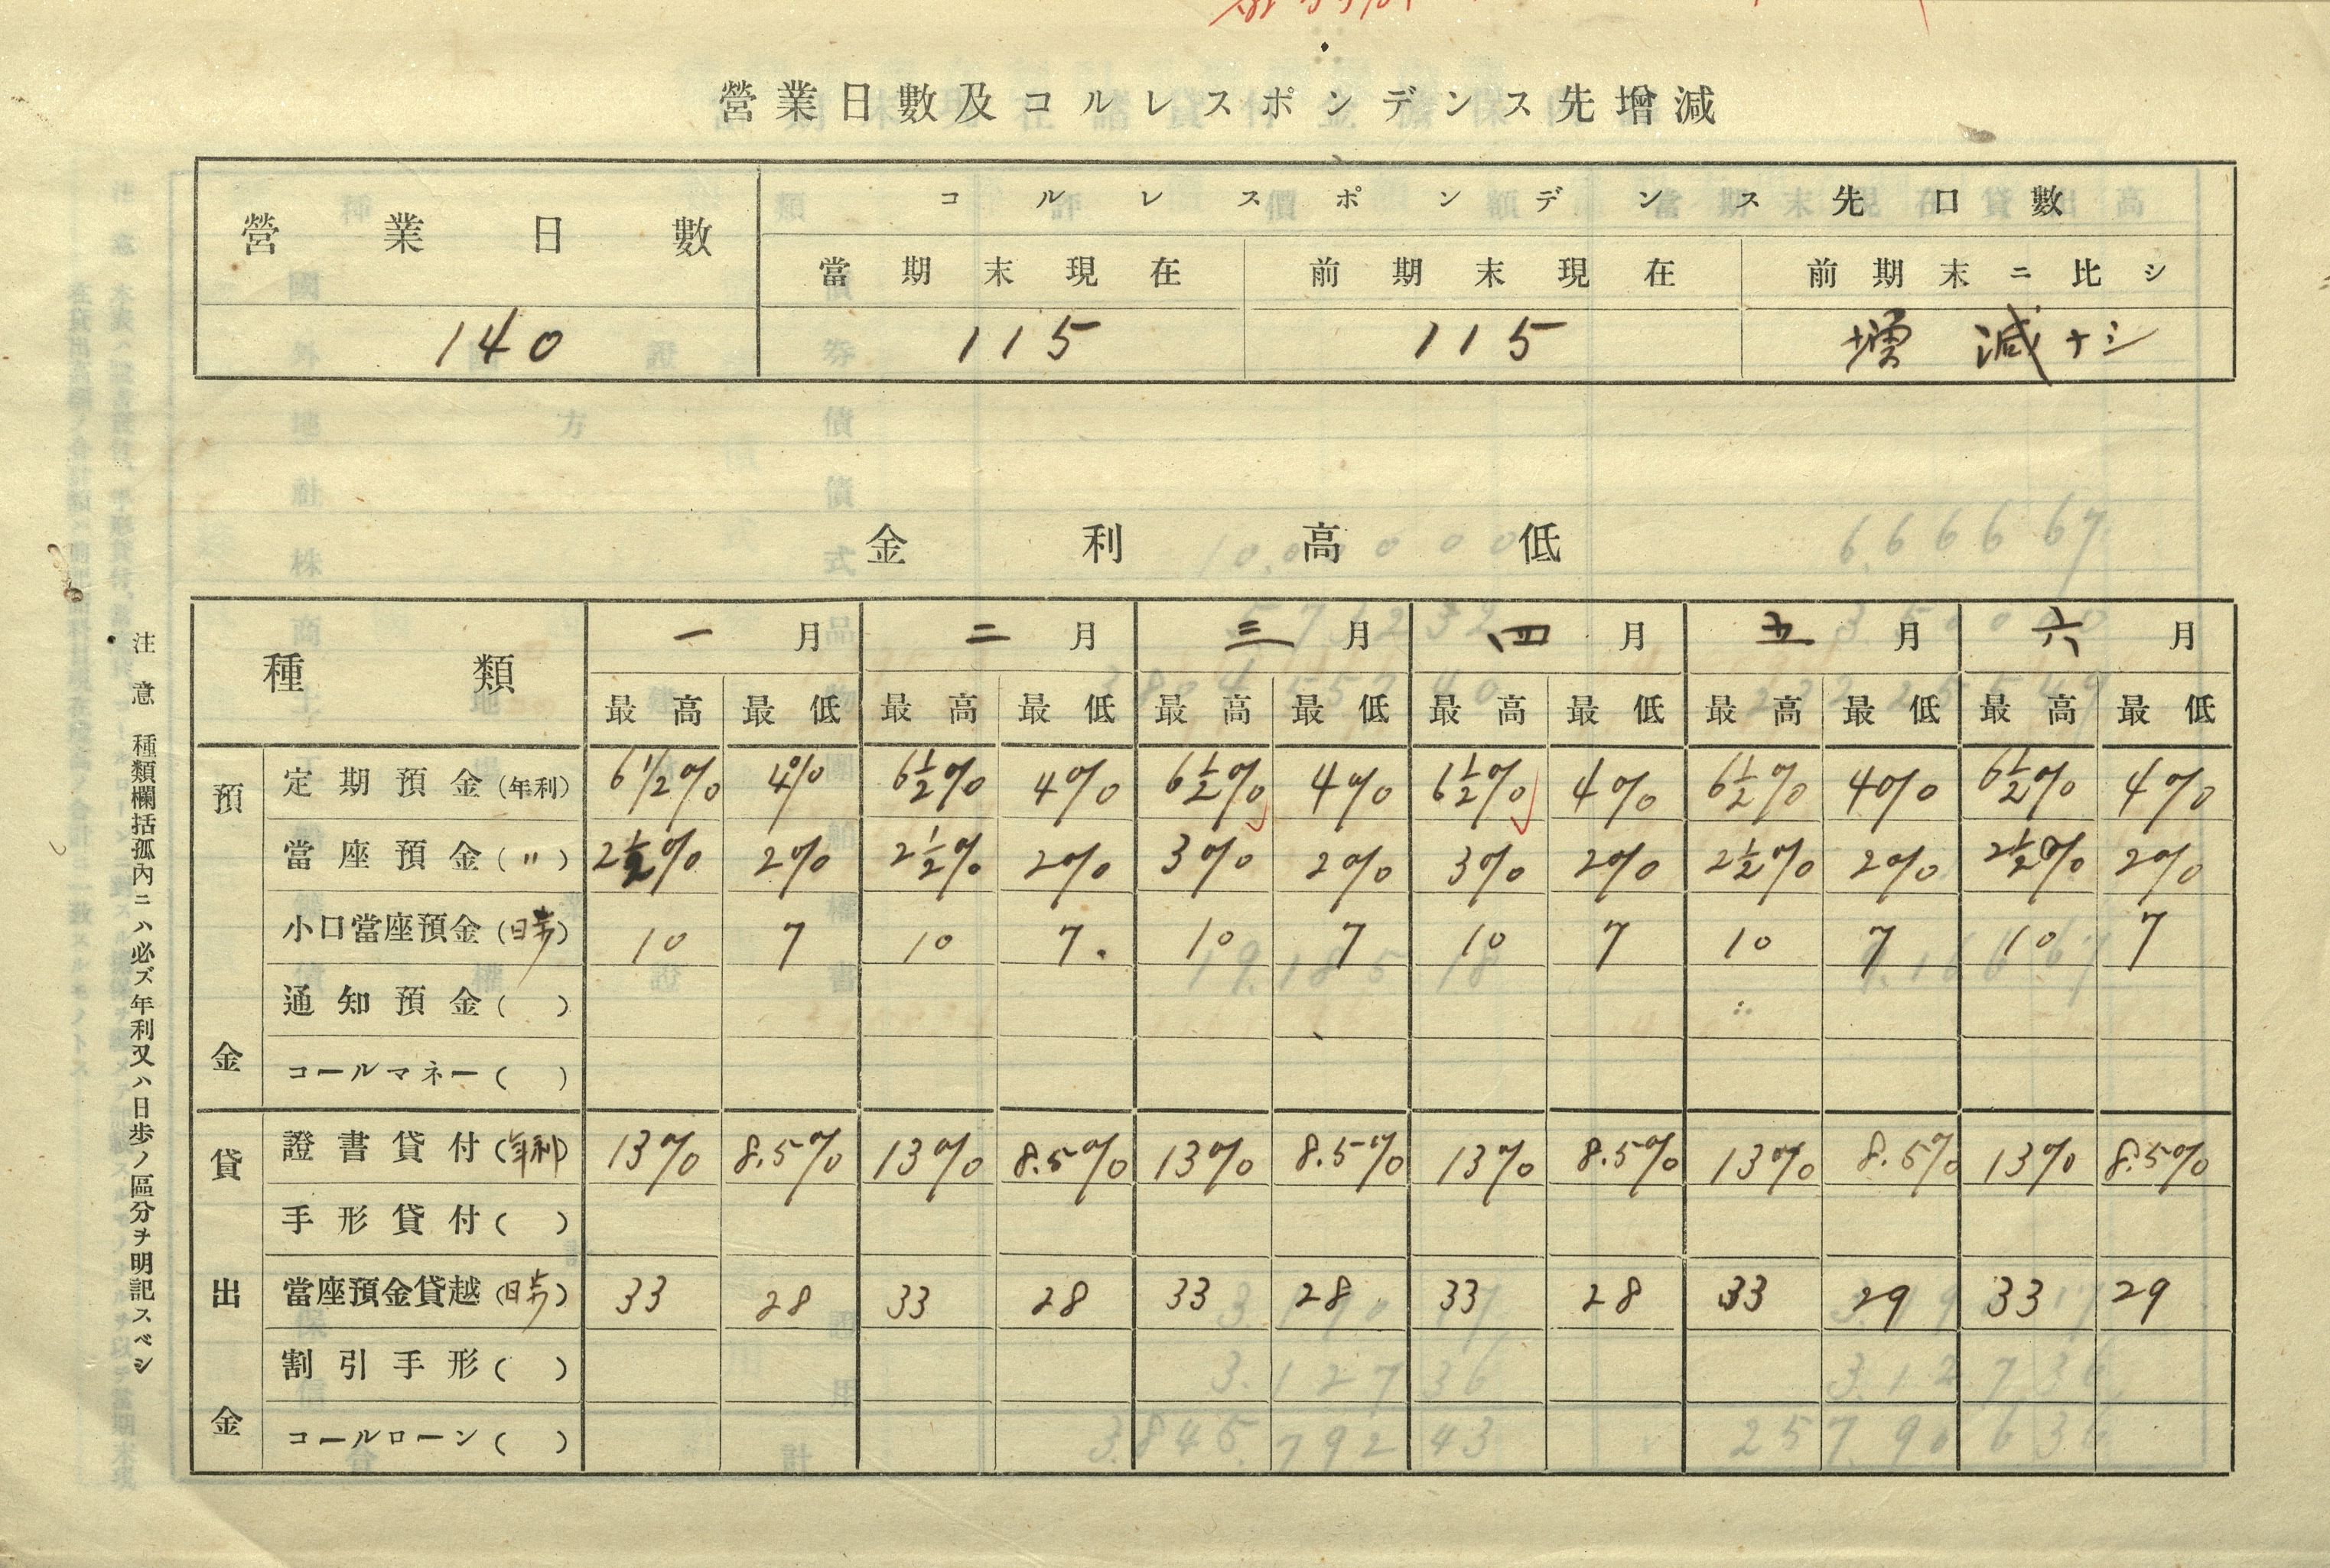 營業日數及コルレスポンデンス先增減
營業日數 コルレスポンデンス先口數
當期末現在 前期末現在 前期末ニ比シ
140 115 115 增減ナシ
金利高低
種類 一月 二月 三月 四月 五月 六月
最高 最低 最高 最低 最高 最低 最高 最低 最高 最低 最高 最低
預金
定期預金(年利) 6 1/2% 4% 6 1/2% 4% 6 1/2% 4% 6 1/2% 4% 6 1/2% 4% 6 1/2% 4%
當座預金(〃) 2 1/2% 2% 2 1/2% 2% 3% 2% 3% 2% 2 1/2% 2% 2 1/2% 2%
小口當座預金(日歩) 10 7 10 7. 10 7 10 7 10 7 10 7
通知預金( )
コールマネー( )
貸出金
證書貸付(年利) 13% 8.5% 13% 8.5% 13% 8.5% 13% 8.5% 13% 8.5% 13% 8.5%
手形貸付( )
當座預金貸越(日歩) 33 28 33 28 33 28 33 28 33 29 33 29
割引手形( )
コールローン( )
注意 種類欄括孤內ニハ必ズ年利又ハ日歩ノ區分ヲ明記スベシ